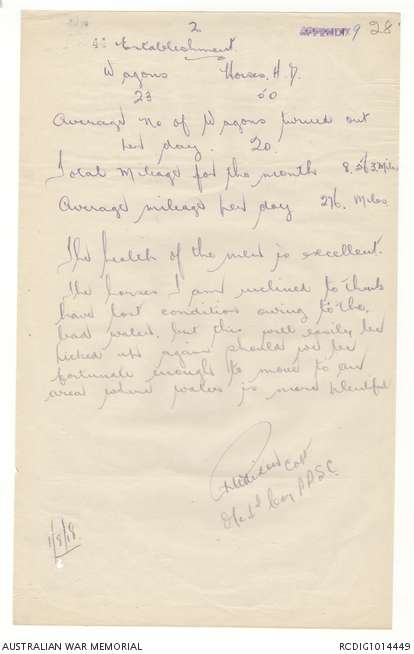 2
APPENDIX 9 28
Establishment
Wagons Horses, H.D.
23 50
Average No of Wagons turned out
per day. 20.
Total Mileage for the month 8,563 Miles
Average mileage per day 276. Miles.
The health of the men is excellent.
The horses I am inclined to think
have lost condition owing to the
bad water, but this will easily be
picked up again should we be
fortunate enough to move to an
area where water is more plentiful
Capt
O/c Coy A.A.S.C.
1/8/18.
AUSTRALIAN WAR MEMORIAL RCDIG1014449